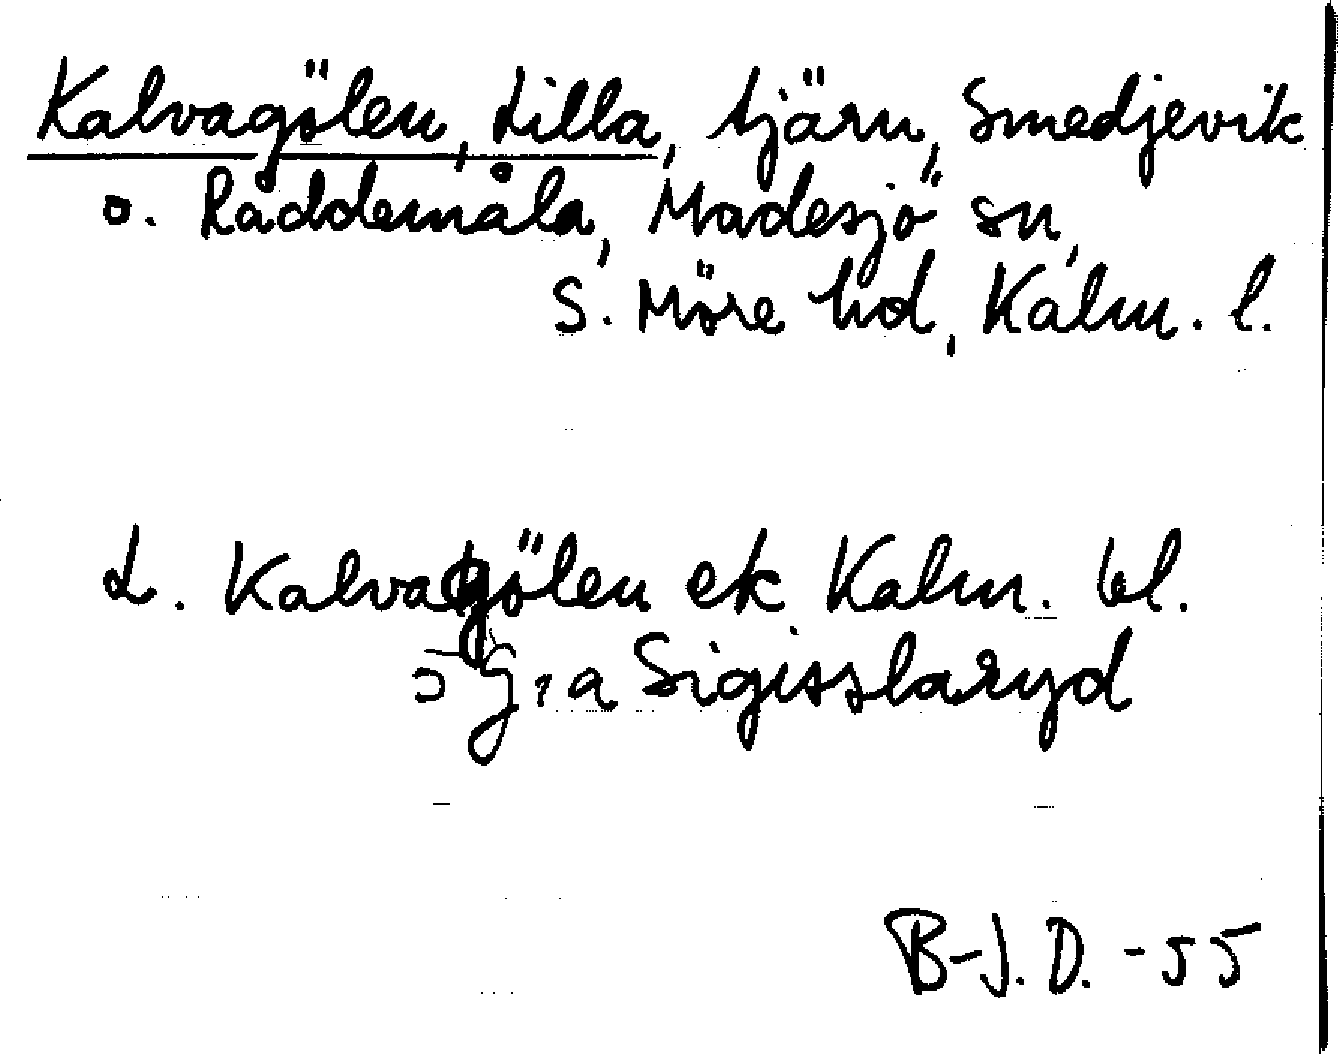 Kalvagölen, Lilla, tjärn, Smedjevik
o. Råddemåla, Madesjö sn,
S. Möre hd, Kalm. l.
L. Kalvagölen ek Kalm. bl.
a Sigisslaryd
B-J.D. -55